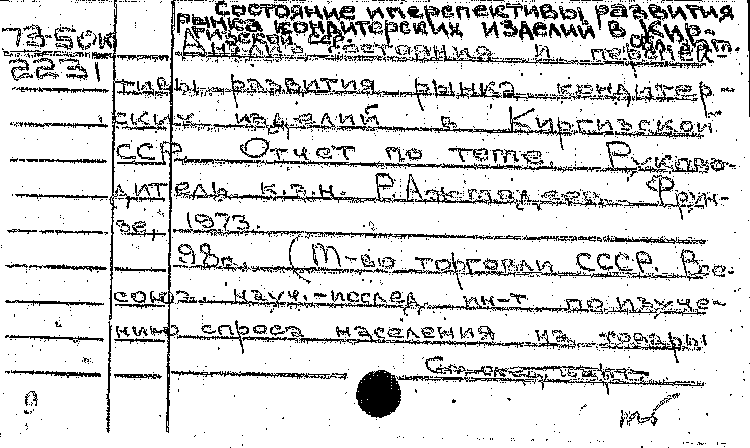 Состояние и перспективы развития
рынка кондитерских изделий в Кир-
гизской ССР.
73-50К
2231
Анализ состояния и перспек-
тивы развития рынка кондитер-
ских изделий в Киргизской
ССР. Отчет по теме. Руково-
дитель к.э.н. Фрун-
зе, 1973.
98с. (М-во торговли СССР. Все-
союз. науч.-исслед. ин-т по изуче-
нию спроса населения на товары